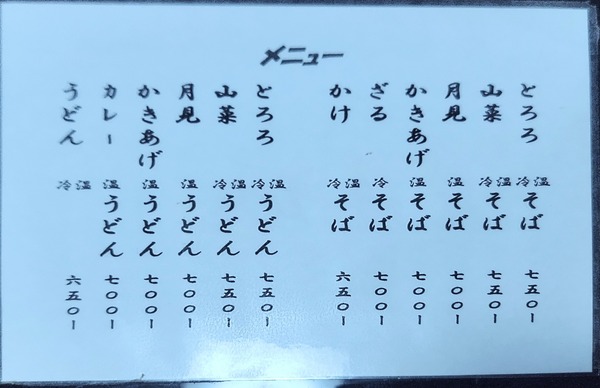 メニュー
とろろ 冷温 そば 七五〇ー
山菜 冷温 そば 七五〇ー
月見 温 そば 七〇〇ー
かきあげ 温 そば 七〇〇ー
ざる 冷 そば 七〇〇ー
かけ 冷温 そば 六五〇ー
とろろ 冷温 うどん 七五〇ー
山菜 冷温 うどん 七五〇ー
月見 温 うどん 七〇〇ー
かきあげ 温 うどん 七〇〇ー
カレー 温 うどん 七〇〇ー
うどん 冷温 六五〇ー